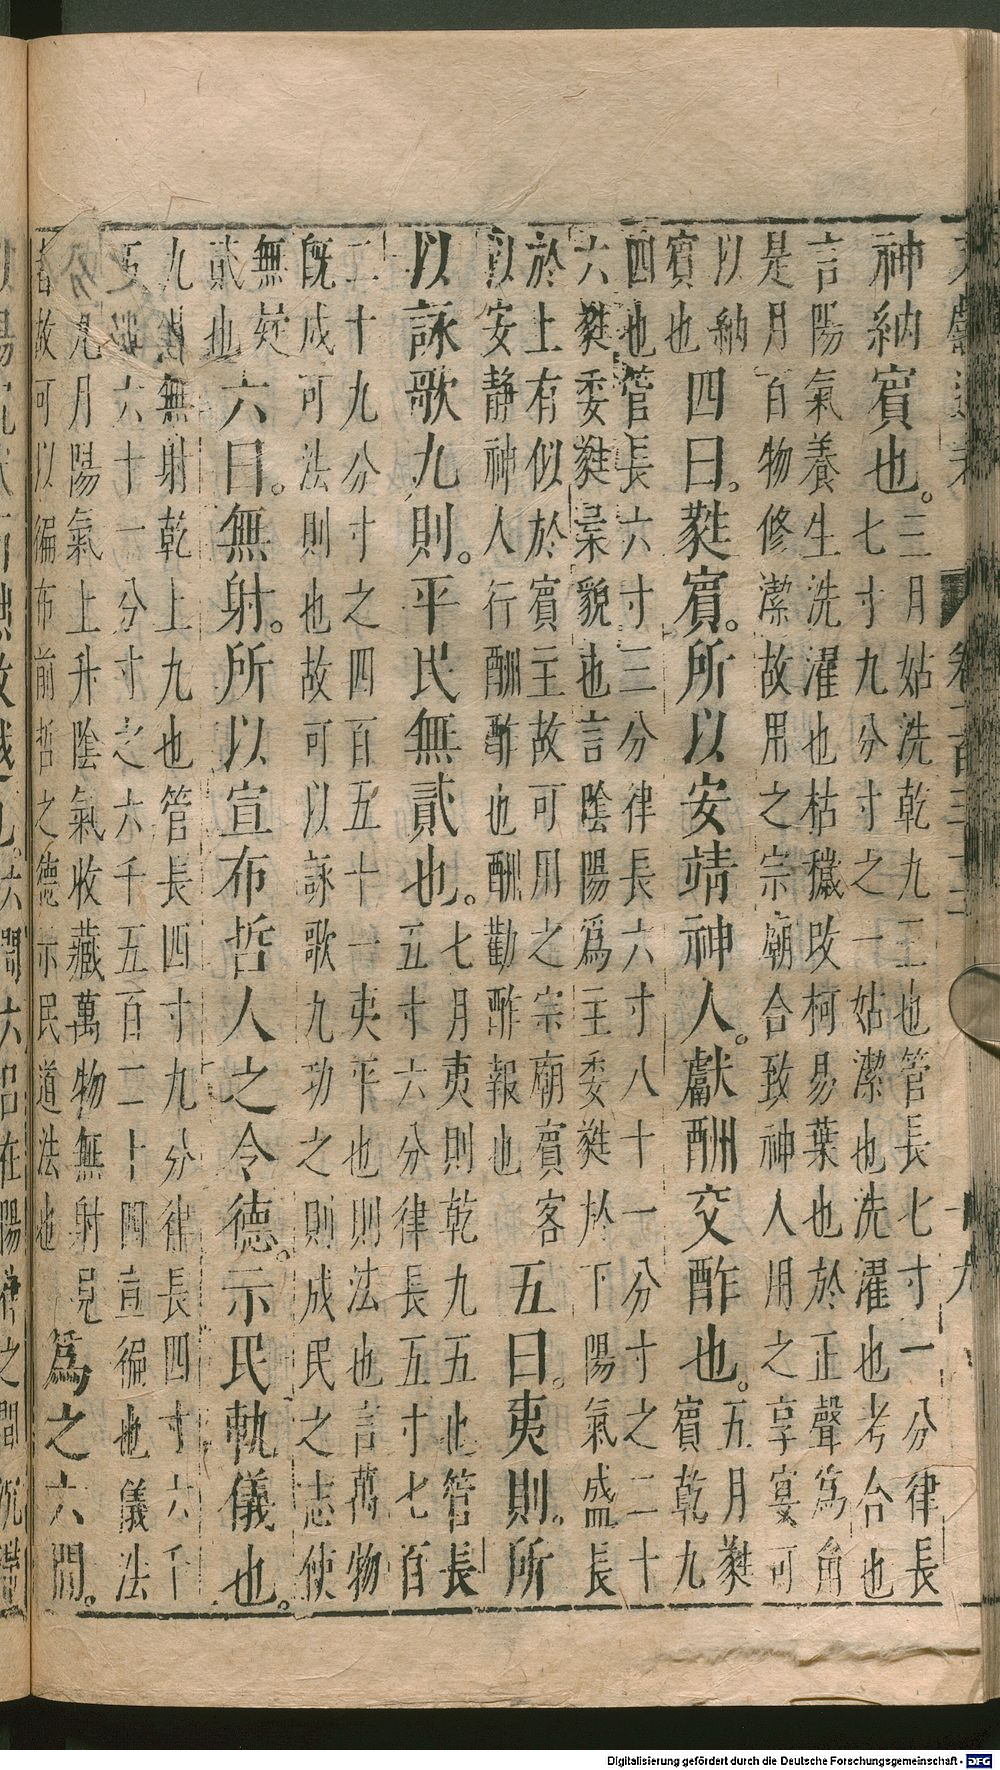 文獻通考 卷一百三十三 十九
神納賓也。三月姑洗乾九三也管長七寸一分律長
七寸九分寸之一姑潔也洗濯也考合也
言陽氣養生洗濯也枯穢改柯易葉也於正聲爲角
是月百物修潔故用之宗廟合致神人用之享宴可
以納
賓也
四曰。蕤賓。所以安靖神人。獻酬交酢也。五月蕤
賓乾九
四也管長六寸三分律長六寸八十一分寸之二十
六蕤委蕤柔貌也言陰陽爲主委蕤於下陽氣盛長
於上有似於賓主故可用之宗廟賓客
以安静神人行酬酢也酬勸酢報也
五曰。夷則。所
以詠歌九則。平民無貳也。七月夷則乾九五也管長
五寸六分律長五寸七百
二十九分寸之四百五十一夷平也則法也言萬物
旣成可法則也故可以詠歌九功之則成民之志使
無疑
貳也
六曰。無射。所以宣布哲人之令德。示民軌儀也。
九月無射乾上九也管長四寸九分律長四寸六千
五百六十一分寸之六千五百二十四宣徧也儀法
九月陽氣上升陰氣收藏萬物無射見
者故可以徧布前哲之德示民道法也
爲之六間。
六間六呂在陽律之間沉滯